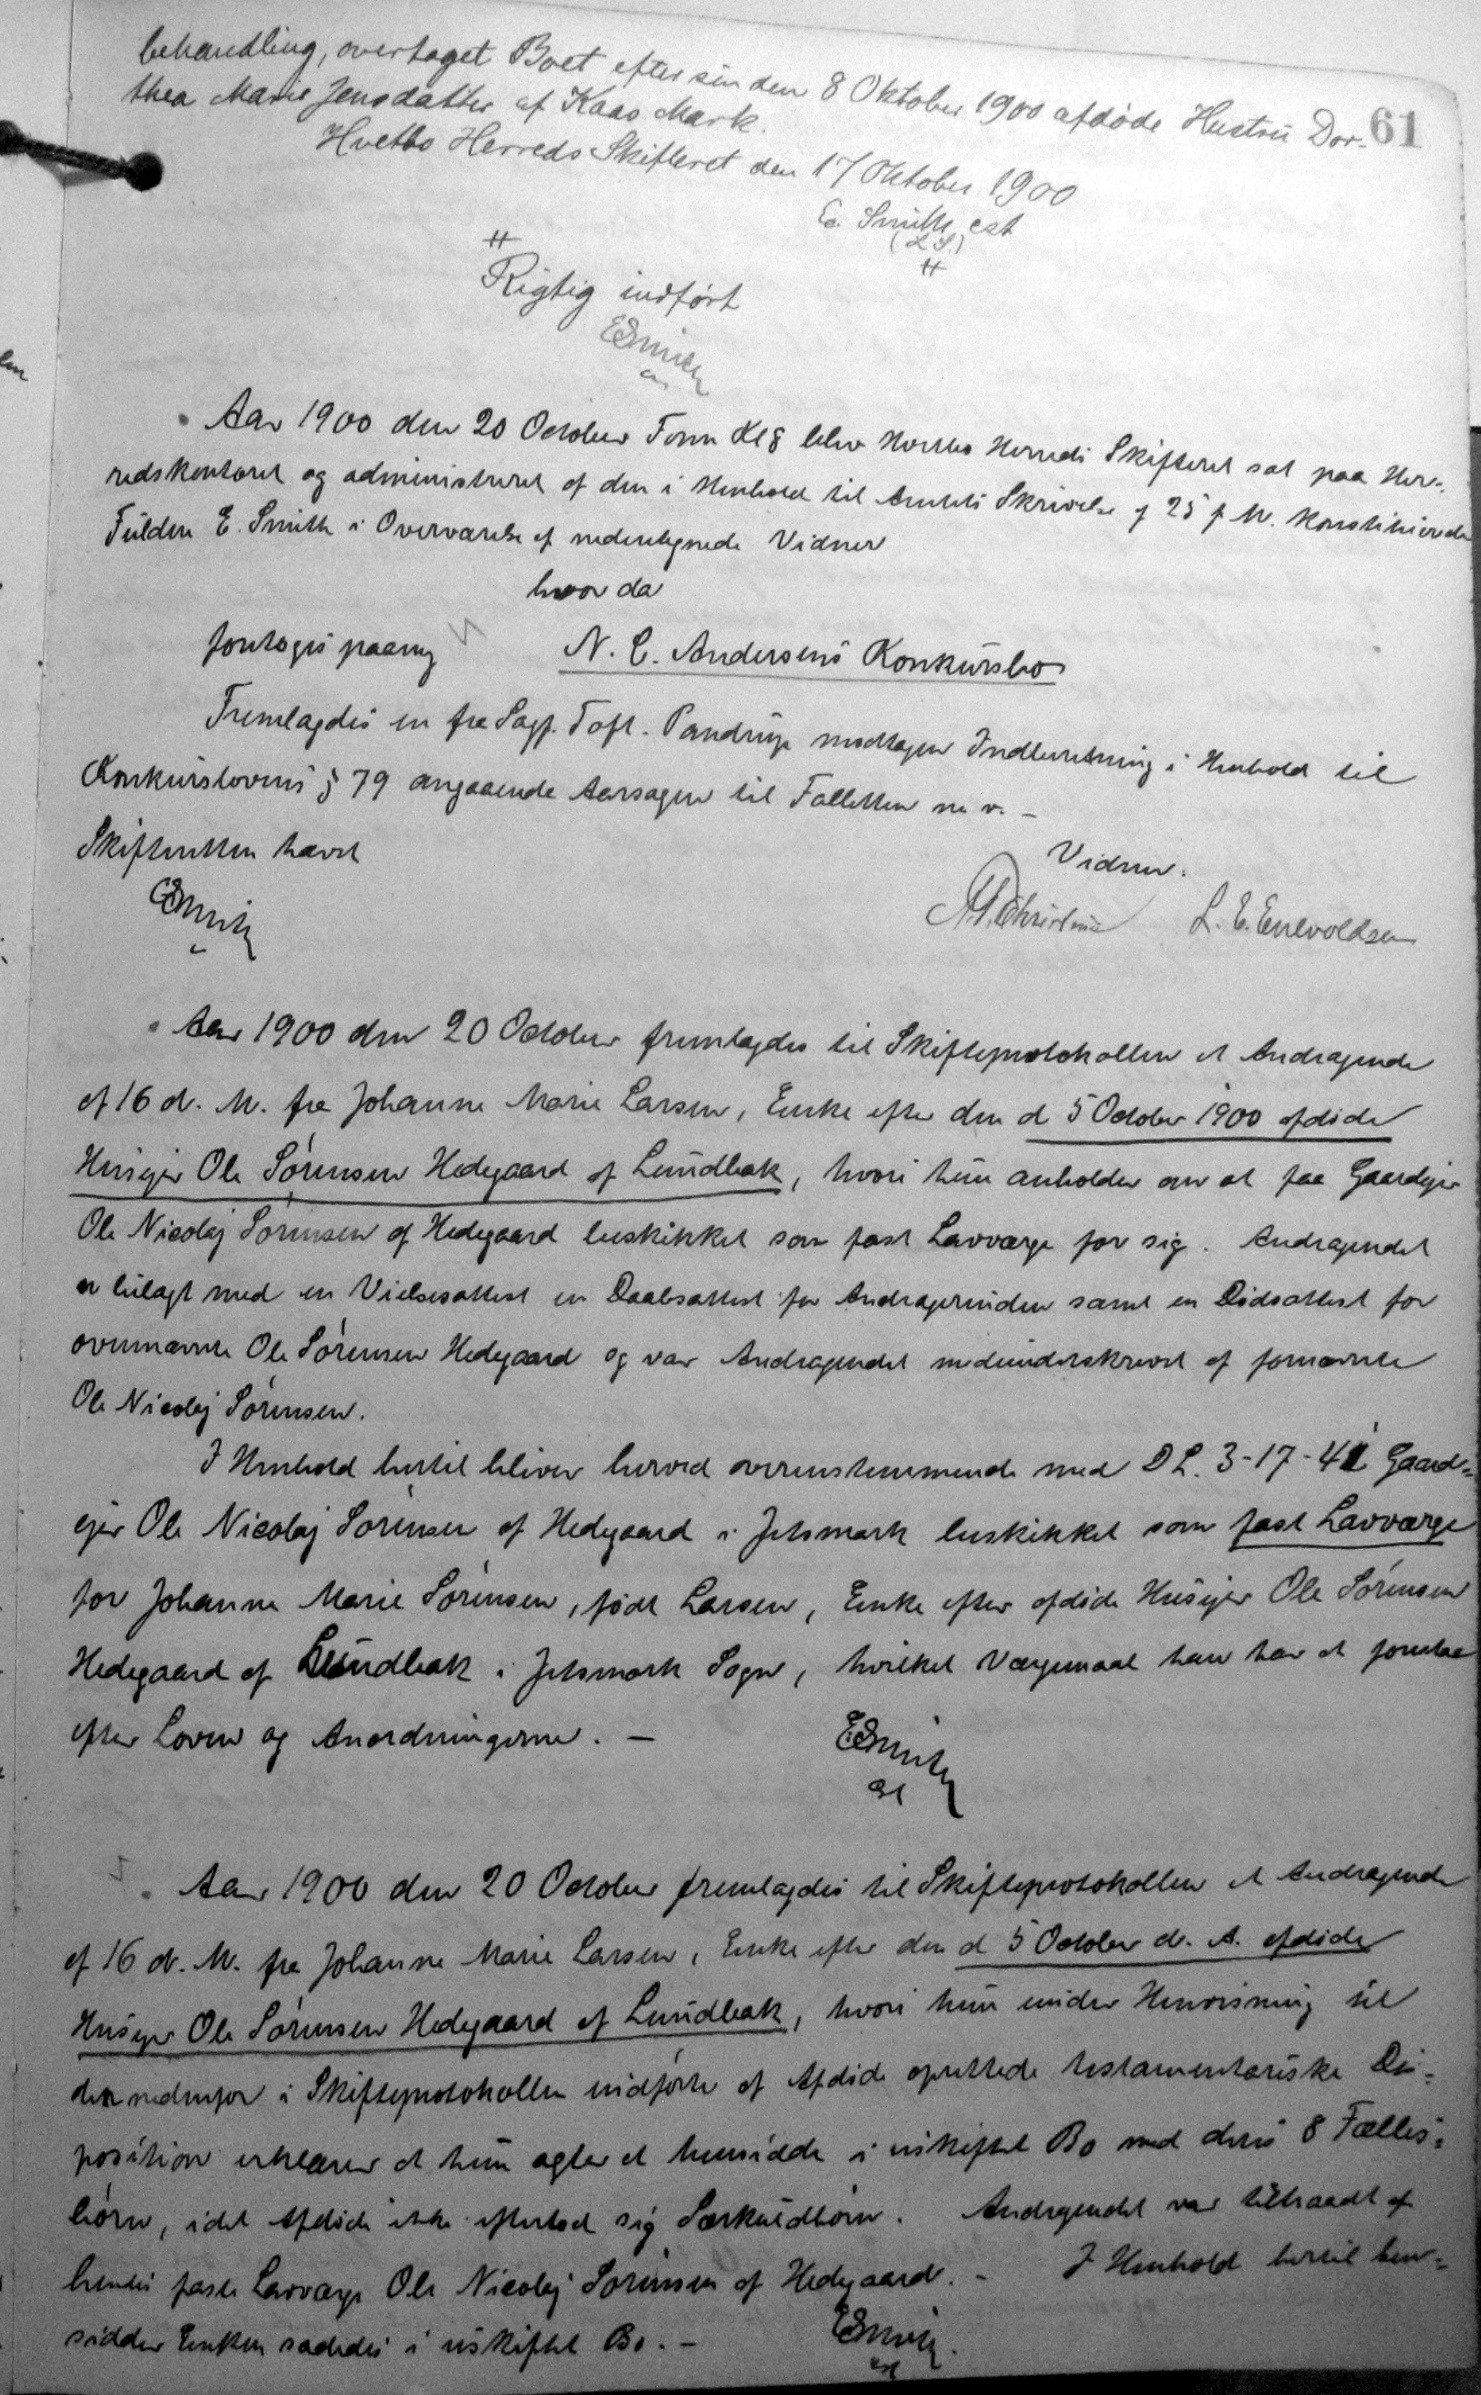 behandling, overtaget Boet efter sin den 8 Oktober 1900 afdøde Hustru Dor-
61
thea Marie Jensdatter af Kaas Mark.
Hvetbo Herreds Skifteret den 17 Oktober 1900
E. Smith est
(L.S.)
Rigtig indført
ESmith
Aar 1900 den 20 October Form Kl 8 blev Hvetbo Herreds Skifteret sat paa Her-
redskontoret og administreret af den i Henhold til Amtets Skrivelse af 25 f. M. konstituerede
Fuldm E. Smith i Overværelse af undertegnede Vidner
hvor da
foretoges paany N. C. Andersens Konkursbo
Fremlagdes en fra Sagf. Toft - Pandrup modtagen Indberetning i Henhold til
Konkurslovens § 79 angaaende Aarsagen til Falletten m. v. -
Skifteretten hævet
Vidner:
ESmith
Christensen L. E. Enevoldsen
Aar 1900 den 20 October fremlagdes til Skifteprotokollen et Andragende
af 16 d. M. fra Johanne Marie Larsen, Enke efter den d 5 October 1900 afdøde
Husejer Ole Sørensen Hedegaard af Lundbak, hvori hun anholder om at faa Gaardejer
Ole Nicolaj Sørensen af Hedegaard beskikket som fast Lavværge for sig. Andragendet
er bilagt med en Vielsesattest en Daabsattest for Andragerinden samt en Dødsattest for
ovennævnte Ole Sørensen Hedegaard og var Andragendet medunderskrevet af fornævnte
Ole Nicolaj Sørensen.
I Henhold hertil bliver herved overensstemmende med D L. 3-17-41 Gaard=
ejer Ole Nicolaj Sørensen af Hedegaard i Jetsmark beskikket som fast Lavværge
for Johanne Marie Sørensen, født Larsen, Enke efter afdøde Husejer Ole Sørensen
Hedegaard af Lundbak i Jetsmark Sogn, hvilket Værgemaal han har at forestaa
efter Loven og Anordningerne. -
ESmith
est
Aar 1900 den 20 October fremlagdes til Skifteprotokollen et Andragende
af 16 d. M. fra Johanne Marie Larsen, Enke efter den d 5 October d. A. afdøde
Husejer Ole Sørensen Hedegaard af Lundbak, hvori hun under Henvisning til
den nedenfor i Skifteprotokollen indførte af Afdøde oprettede testamentariske Dis=
position erklærer at hun agter at hensidde i uskiftet Bo med deres 8 Fælles=
børn, idet Afdøde ikke efterlod sig Særkuldbørn. Andragendet var tiltraadt af
hendes faste Lavværge Ole Nicolaj Sørensen af Hedegaard. - I Henhold hertil hen=
sidder Enken saaledes i uskiftet Bo. -
ESmith
est